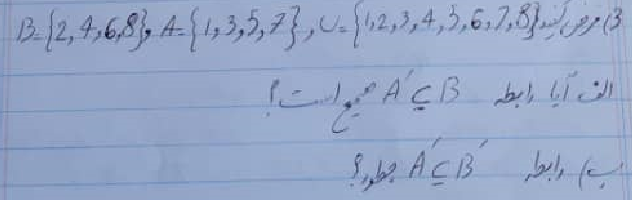 3) فرض کنید U={1,2,3,4,5,6,7,8} , A={1,3,5,7} , B={2,4,6,8}
الف) آیا رابطه A'⊆B صحیح است؟
ب) رابطه A'⊆B' چطور؟